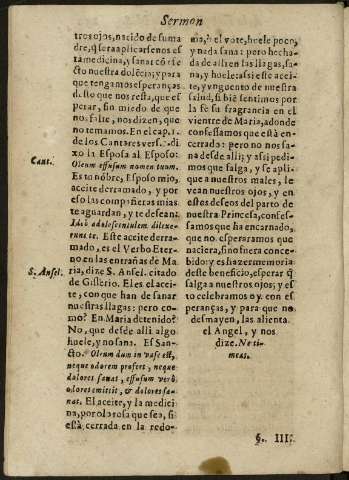 Sermon
tros ojos, nacido de su ma
dre, q̃ sera aplicarsenos es
ta medicina, y sana: cõ ef-
cto nuestra dolẽcia; y para
que tengamos esperanças
desto que nos resta, que es
perar, sin miedo de que
no falte, nos dizen, que
no temamos. En el cap. 1.
de los Cantares vers. di-
Cant.
xo la Esposa al Esposo:
Oleum effusum nomen tuum.
Es tu nõbre, Esposo mio,
aceite derramado, y por
eso las compañeras mias
te aguardan, y te desean:
Ideò adolescentulem dilexe-
runt te. Este aceite derra-
mado, es el Verbo Eter-
no en las entrañas de Ma
S. Ansel.
ria, dize S. Ansel. citado
de Gislerio. El es el acei-
te, con que han de sanar
nuestras llagas: pero co-
mo? En Maria detenido?
No, que desde alli algo
huele, y no sana. Es San-
cto. Oleum dum in vase est,
neque odorem profert, neque
dolores sanat, effusum verò
odores emittit, & dolores sa-
nat. El aceite, y la medici
na, por olorosa que sea, si
está cerrada en la redo-
ma, ò el vote, huele poco,
y nada sana: pero hecha-
da de alli en las llagas, sa-
na, y huele: assi este acei-
te, y vnguento de nuestra
salud, si biẽ sentimos por
la fe su fragrancia en el
vientre de Maria, adonde
confessamos que està en-
cerrado: pero no nos sa-
na desde alli; y assi pedi-
mos que salga, y se apli-
que a nuestros males, le
vean nuestros ojos, y en
estos deseos del parto de
nuestra Princesa, confes-
samos que ha encarnado,
que no esperaramos que
naciera, sino fuera conce-
bido: y es hazer memoria
deste beneficio, esperar q̃
salga a nuestros ojos; y es
to celebramos oy con es
peranças, y para que no
desmayen, las alienta
el Angel, y nos
dize. Ne ti-
meas.
§. III.